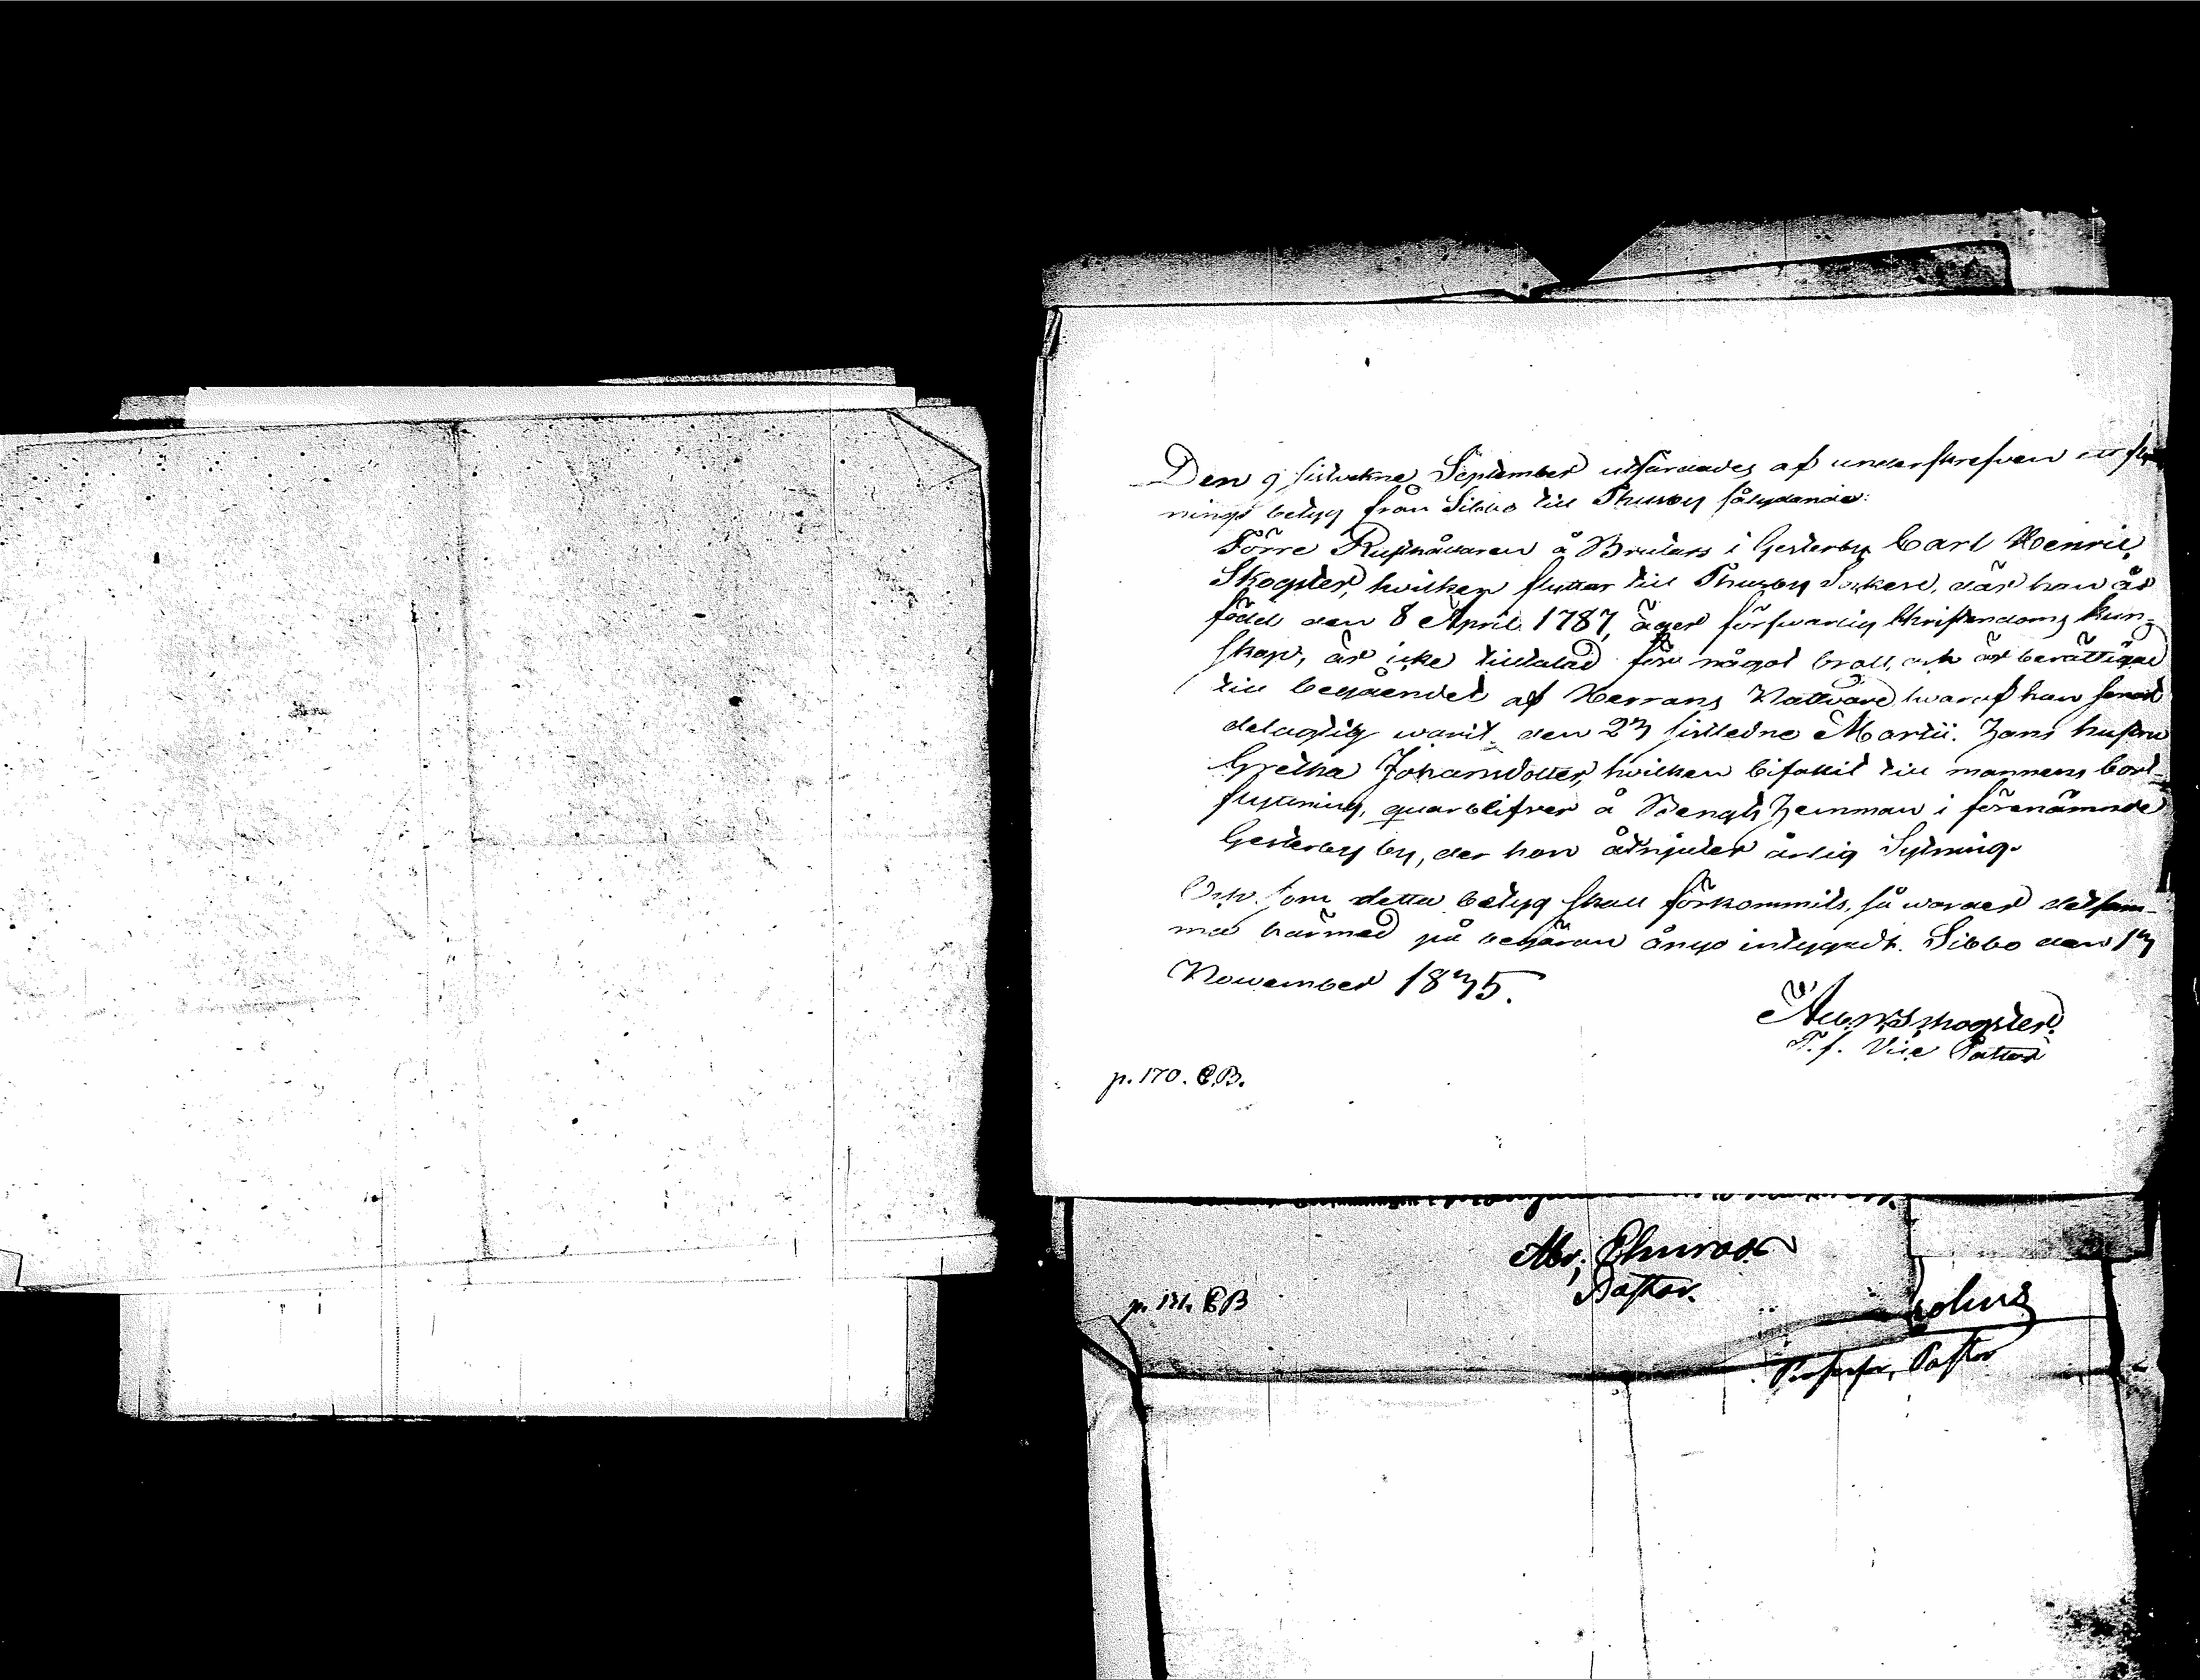 Den 9 sistvekne September utfärdades af underskrefven ett flytt
nings betyg från Sibbo till Thusby sålydande:
Förre Rusthållaren å Brutars i Gesterby Carl Henric
Skogster, hvilken flyttar till Thusby Socken, där han är
född den 8 April 1787, äger förswarlig Christendoms kun-
skap, är icke tilltalad för något brott, och är berättigad
till begåendet af Herrans Nattvard hwaraf han senast
delagtig warit den 23 sistledne Martii. Hans hustru
Gretha Johansdotter, hvilken bifallit till mannens bort-
flyttning, quarblifver å Bengts Hemman i förenämnde
Gesterby by, der hon åtnjuter årlig Sytning.
Och som detta betyg skall förkommits, så warder detsam-
ma härmed på begäran ånyo intygadt. Sibbo den 13
November 1835.
Skogster.
T. f. Vice Pastor
p. 170. C.B.
Pastor.
p. 131. C.B
Pastor